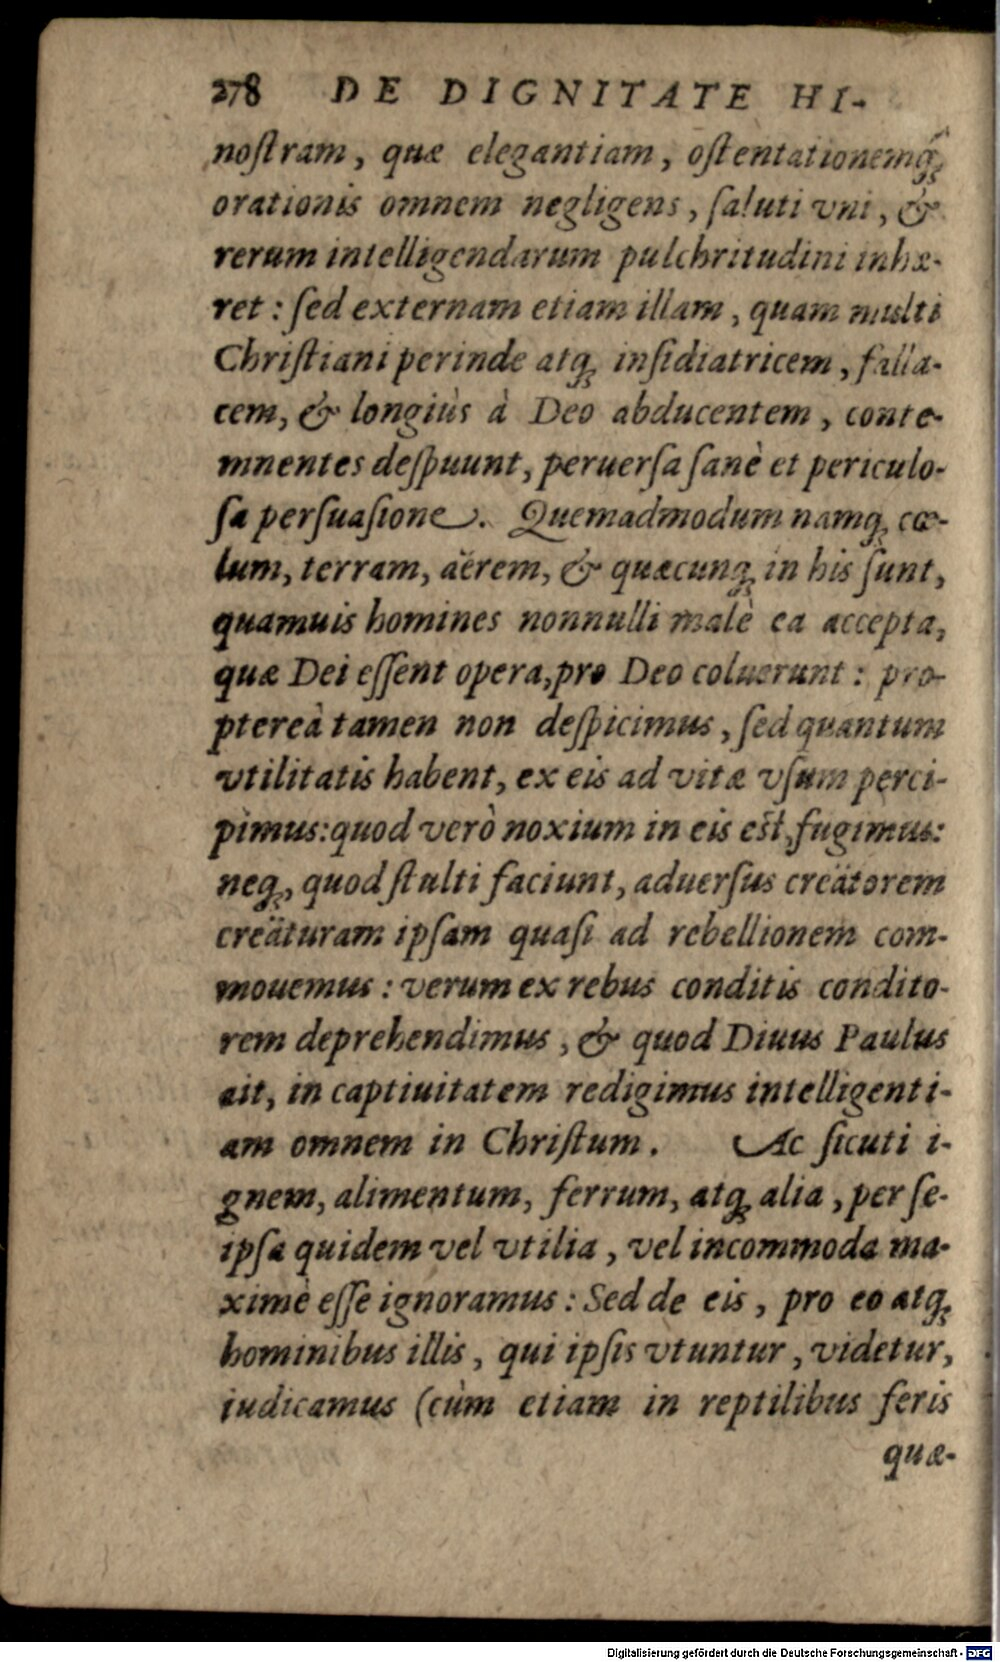 278 DE DIGNITATE HI-
noſtram, quæ elegantiam, oſtentationemq́ꝫ
orationis omnem negligens, ſaluti vni, &
rerum intelligendarum pulchritudini inhæ-
ret: ſed externam etiam illam, quam multi
Chriſtiani perinde atqꝫ inſidiatricem, falla-
cem, & longiùs à Deo abducentem, conte-
mnentes deſpuunt, peruerſa ſanè et periculo-
ſa perſuaſione. Quemadmodum namqꝫ cœ-
lum, terram, aërem, & quæcunqꝫ in his ſunt,
quamuis homines nonnulli malè ea accepta,
quæ Dei eſſent opera, pro Deo coluerunt: pro-
ptereà tamen non deſpicimus, ſed quantum
vtilitatis habent, ex eis ad vitæ vſum perci-
pimus: quod verò noxium in eis eſt, fugimus:
neqꝫ, quod ſtulti faciunt, aduerſus creätorem
creäturam ipſam quaſi ad rebellionem com-
mouemus: verum ex rebus conditis condito-
rem deprehendimus, & quod Diuus Paulus
ait, in captiuitatem redigimus intelligenti-
am omnem in Chriſtum. Ac ſicuti i-
gnem, alimentum, ferrum, atqꝫ alia, per ſe-
ipſa quidem vel vtilia, vel incommoda ma-
ximè eſſe ignoramus: Sed de eis, pro eo atqꝫ
hominibus illis, qui ipſis vtuntur, videtur,
iudicamus (cùm etiam in reptilibus feris
quæ-
Digitalisierung gefördert durch die Deutsche Forschungsgemeinschaft - DFG